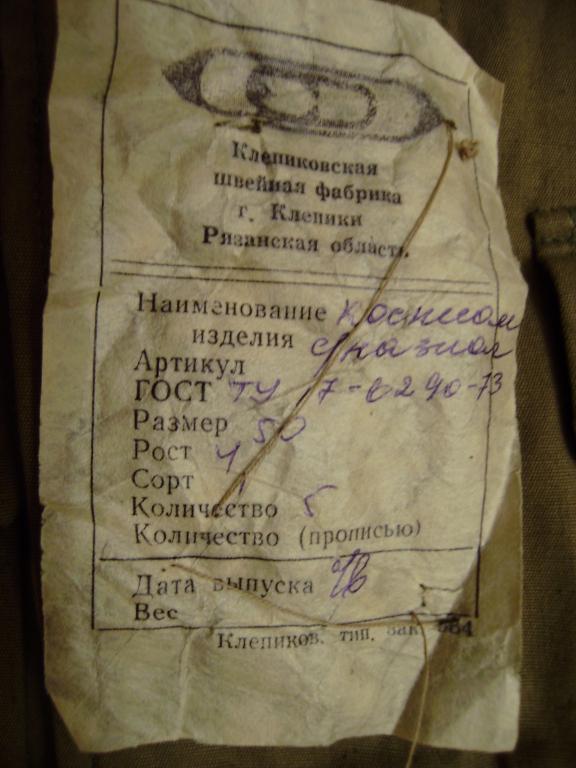 Клепиковская
швейная фабрика
г. Клепики
Рязанская область
Наименование костюм
изделия
Артикул
ГОСТ ТУ 17-6290-73
Размер 50
Рост 4
Сорт 1
Количество 5
Количество (прописью)
Дата выпуска
Вес
Клепиков. тип. зак. 564